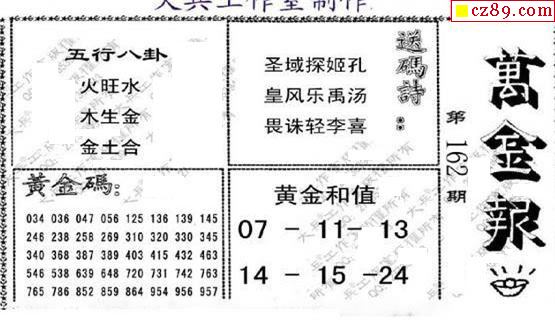 天兵工作室制作
cz89.com
五行八卦
火旺水
木生金
金土合
送碼詩：
圣域探姬孔
皇风乐禹汤
畏诛轻李喜
萬金报
第162期
黃金碼：
034 036 047 056 125 136 139 145
246 238 258 269 310 320 330 345
340 368 387 389 403 415 432 463
546 538 639 648 720 731 742 763
765 786 852 859 864 954 956 957
黄金和值
07 - 11- 13
14 - 15 -24